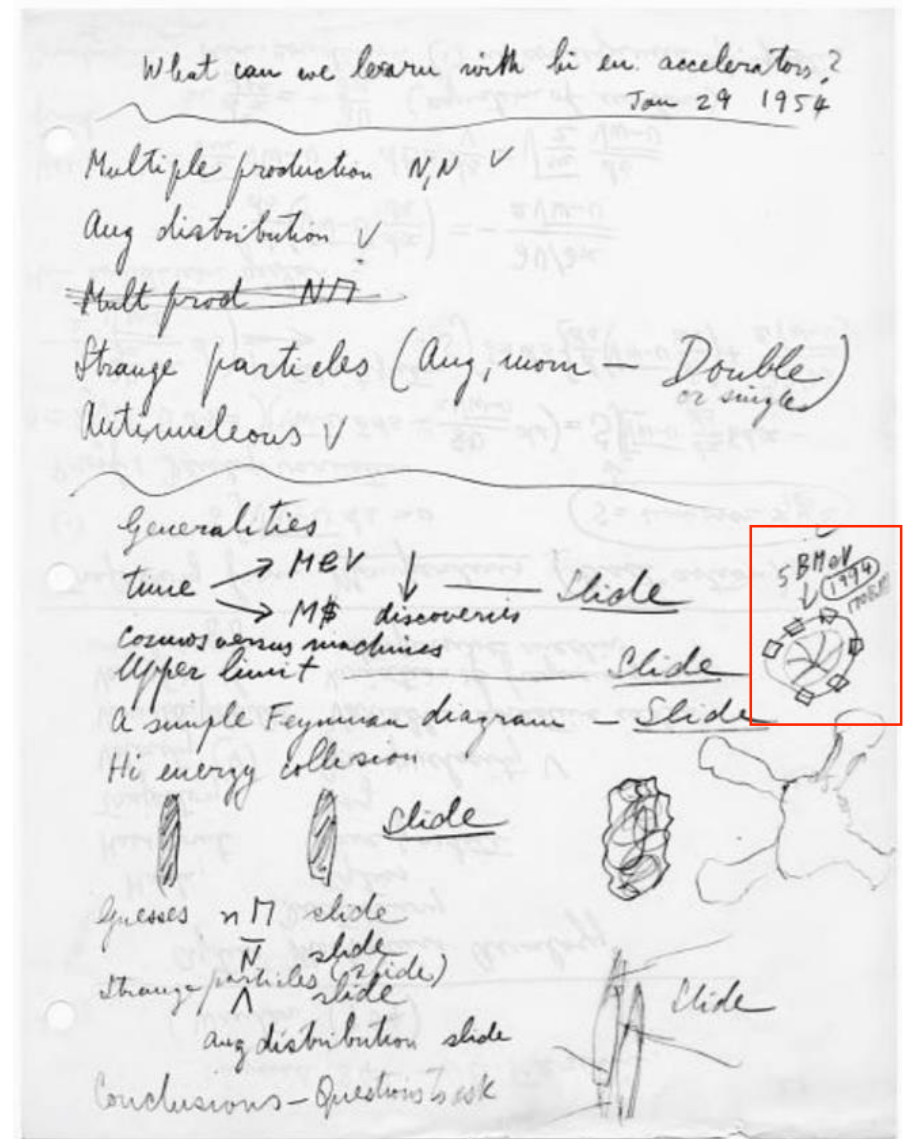 What can we learn with hi en. accelerators?
Jan 29 1954
Multiple production N,N V
Ang distribution V
Mult prod NΠ
Strange particles (Ang, mom – Double)
or single
Antinucleons V
Generalities
time → MeV ↓ — Slide
→ M$ discoveries
5 BMeV
1994
Cosmos versus machines
Upper limit — Slide
A simple Feynman diagram – Slide
Hi energy collision
Slide
Guesses n Π slide
N̅ slide
Strange particles (slide)
Λ slide
Slide
ang distribution slide
Conclusions – Questions to ask